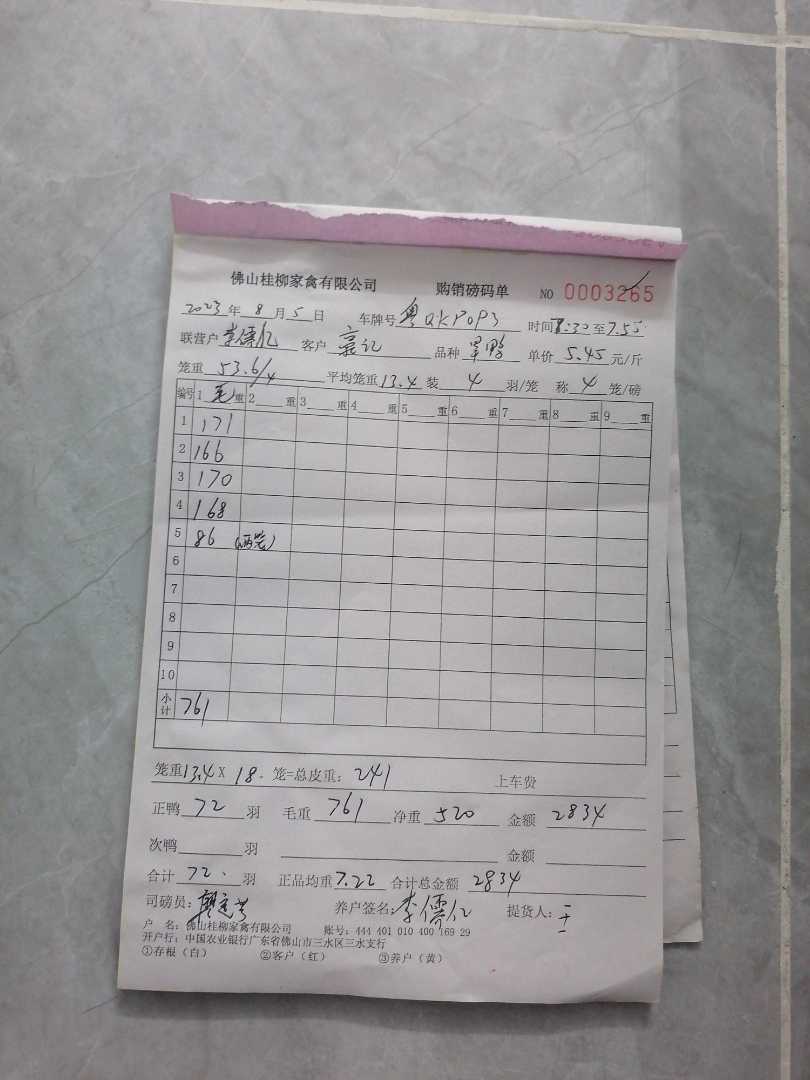 佛山桂柳家禽有限公司 购销磅码单 NO 0003265
2023年8月5日 车牌号 粤QKP0P3 时间 7:30至7.55
联营户 李儒亿 客户 记 品种 鸭 单价 5.45元/斤
笼重 53.6/4 平均笼重13.4 装 4 羽/笼 称 4 笼/磅
编号 1毛重 2重 3重 4重 5重 6重 7重 8重 9重
1 171
2 166
3 170
4 168
5 86 (两笼)
6
7
8
9
10
小计 761
笼重13.4X 18. 笼=总皮重: 241 上车费
正鸭 72 羽 毛重 761 净重 520 金额 2834
次鸭 羽 金额
合计 72. 羽 正品均重7.22 合计总金额 2834
司磅员: 养户签名: 李儒亿 提货人: 王
户 名: 佛山桂柳家禽有限公司 账号: 444 401 010 400 169 29
开户行: 中国农业银行广东省佛山市三水区三水支行
①存根(白) ②客户(红) ③养户(黄)